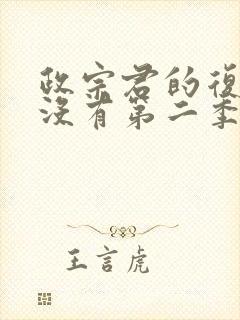 政宗君的復
沒有第二季
王言虎